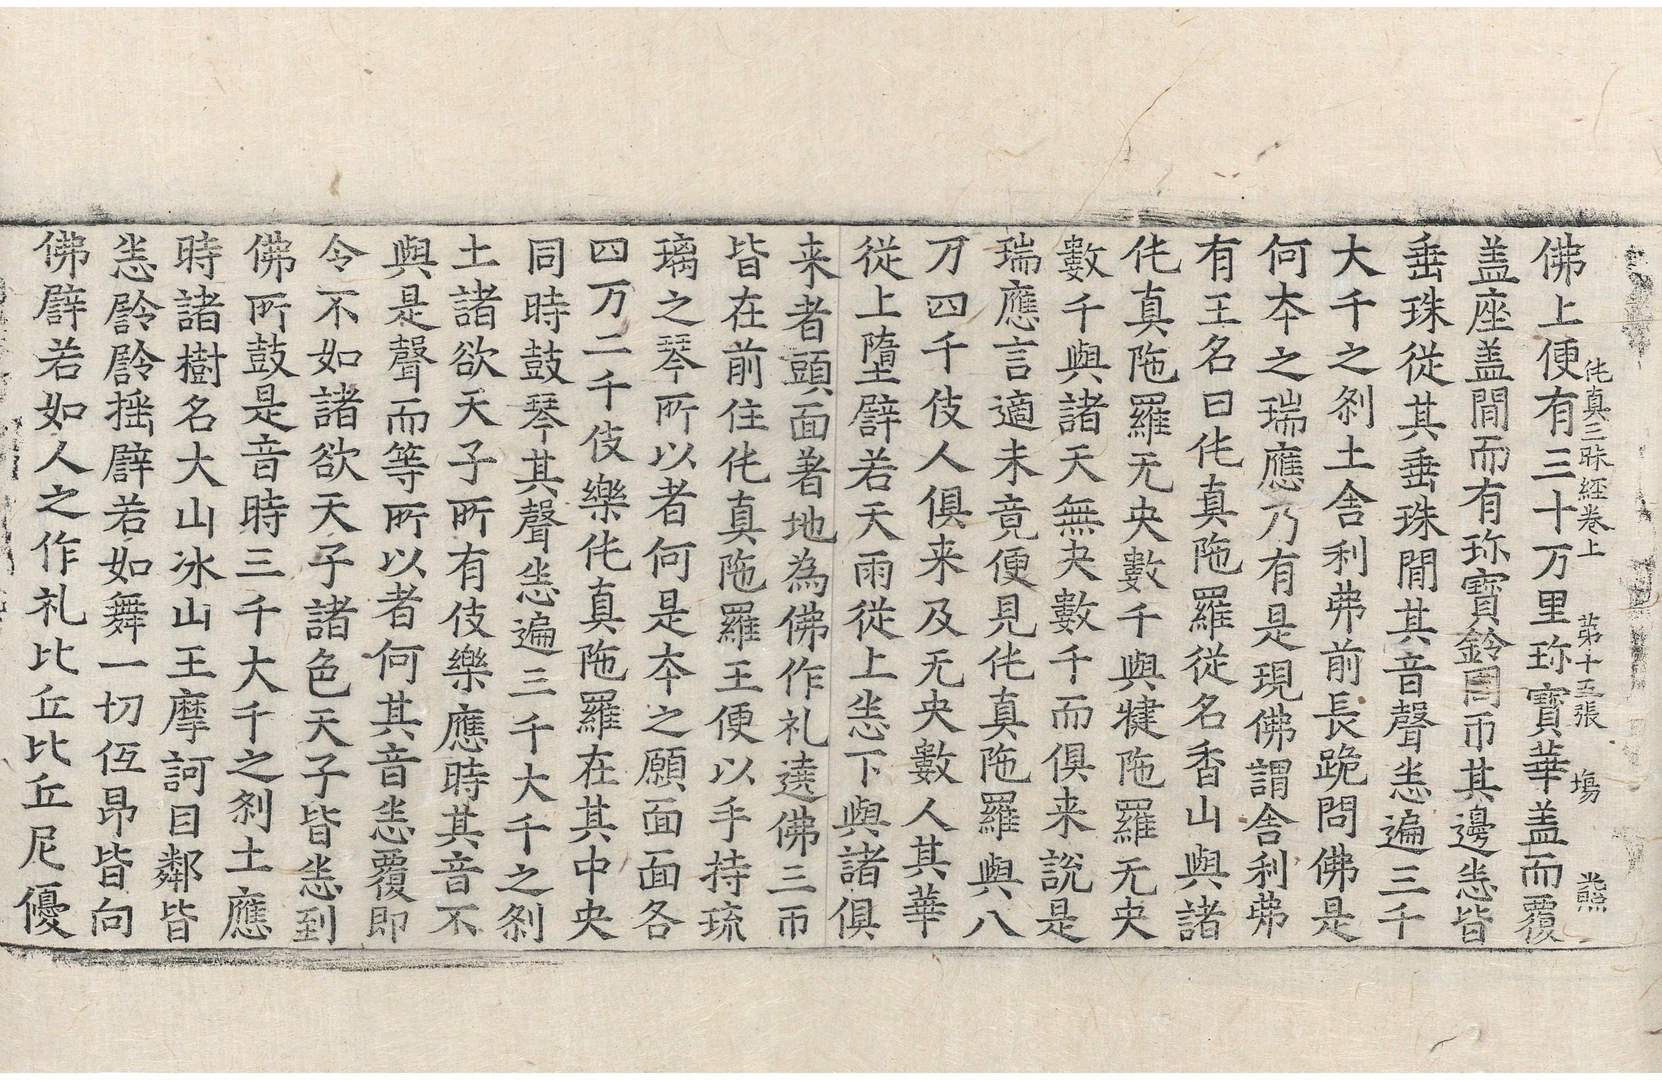 佛上便有三十万里珎寳華盖而覆
盖座盖間而有珎寳鈴周帀其邊悉皆
垂珠從其垂珠間其音聲悉遍三千
大千之刹土舎利弗前長跪問佛是
何夲之瑞應乃有是現佛謂舎利弗
有王名曰伅真陁羅從名香山與諸
伅真陁羅无央數千與揵陁羅无央
數千與諸天無央數千而俱来說是
瑞應言適未竟便見伅真陁羅與八
万四千伎人俱来及无央數人其華
從上墮譬若天雨從上悉下與諸俱
来者頭面著地為佛作礼遶佛三帀
皆在前住伅真陁羅王便以手持琉
璃之琴所以者何是夲之願面面各
四万二千伎樂伅真陁羅在其中央
同時鼓琴其聲悉遍三千大千之刹
土諸欲天子所有伎樂應時其音不
與是聲而等所以者何其音悉覆即
令不如諸欲天子諸色天子皆悉到
佛所鼓是音時三千大千之刹土應
時諸樹名大山冰山王摩訶目鄰皆
悉岭岭揺譬若如舞一切低昂皆向
佛譬若如人之作礼比丘比丘尼優
伅真三昧經卷上　第十五張　塲　熊